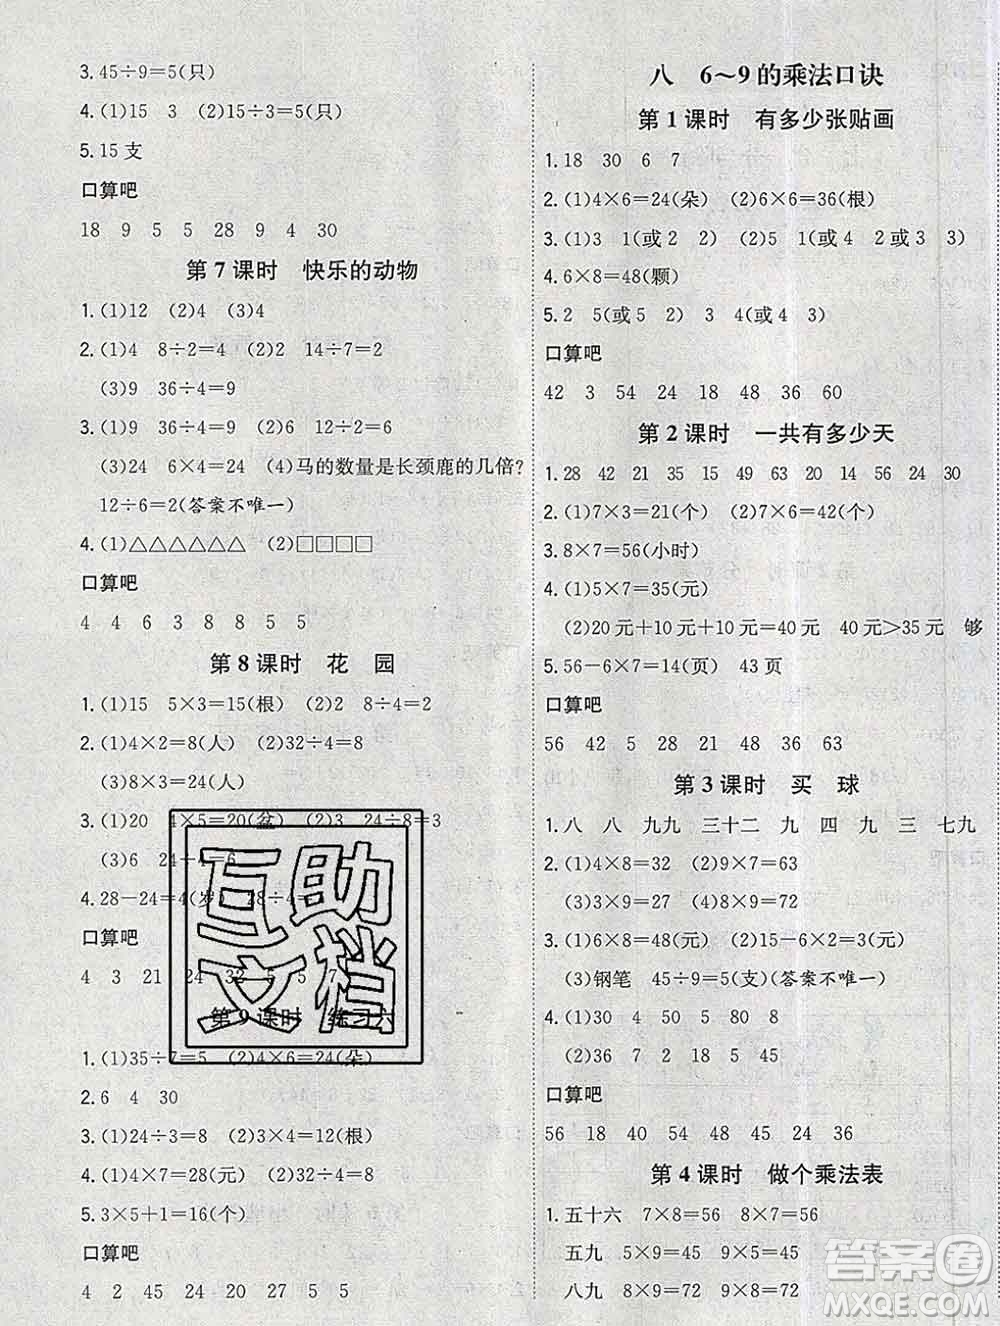 3.45÷9=5(只)
4.(1)15 3 (2)15÷3=5(只)
5.15 支
口算吧
18 9 5 5 28 9 4 30
第 7 课时 快乐的动物
1.(1)12 (2)4 (3)4
2.(1)4 8÷2=4 (2)2 14÷7=2
(3)9 36÷4=9
3.(1)9 36÷4=9 (2)6 12÷2=6
(3)24 6×4=24 (4)马的数量是长颈鹿的几倍?
12÷6=2(答案不唯一)
4.(1)△△△△△△ (2)□□□□
口算吧
4 4 6 3 8 8 5 5
第 8 课时 花 园
1.(1)15 5×3=15(根) (2)2 8÷4=2
2.(1)4×2=8(人) (2)32÷4=8
(3)8×3=24(人)
3.(1)20 4×5=20(盆) (2)3 24÷8=3
24÷4=6
4.28-24=4(岁) 28÷4=
口算吧
4 3 21 24 3 5 7
第 9 课时 练习六
1.(1)35÷7=5 (2)4×6=24(朵)
2.6 4 30
3.(1)24÷3=8 (2)3×4=12(根)
4.(1)4×7=28(元) (2)24÷3=8
5.3×5+1=16(个)
口算吧
4 2 45 20 27 5 5
互助文档
八 6～9 的乘法口诀
第 1 课时 有多少张贴画
1.18 30 6 7
2.(1)4×6=24(朵) (2)6×6=36(根)
3.(1)3 1(或 2 2) (2)5 1(或 4 2或 3 3)
4.6×8=48(颗)
5.2 5(或 5 2) 3 4(或 4 3)
口算吧
42 3 54 24 18 48 36 60
第 2 课时 一共有多少天
1.28 42 21 35 15 20 14 56 24 30
2.(1)7×3=21(个) (2)7×6=42(个)
3.8×7=56(小时)
4.(1)5×7=35(元)
(2)20 元+10 元+10 元=40 元 40 元>35 元 够
5.56-6×7=14(页) 43 页
口算吧
56 42 5 28 21 48 36 63
第 3 课时 买 球
1.八 八 九九 三十二 九 四 九 三 七九
2.(1)4×8=32 (2)7×9=63
(3)3×9=27 (4)8×9=72
3.(1)6×8=48(元) (2)15-6×2=3(元)
(3)钢笔 45÷9=5(支)(答案不唯一)
4.(1)30 4 50 5 80 8
(2)36 7 2 18 5 45
口算吧
56 18 40 54 9 45 24 36
第 4 课时 做个乘法表
1.五十六 7×8=56 8×7=56
五九 5×9=45 9×5=45
八九 8×9=72 9×8=72
答案圈
MXQE.COM